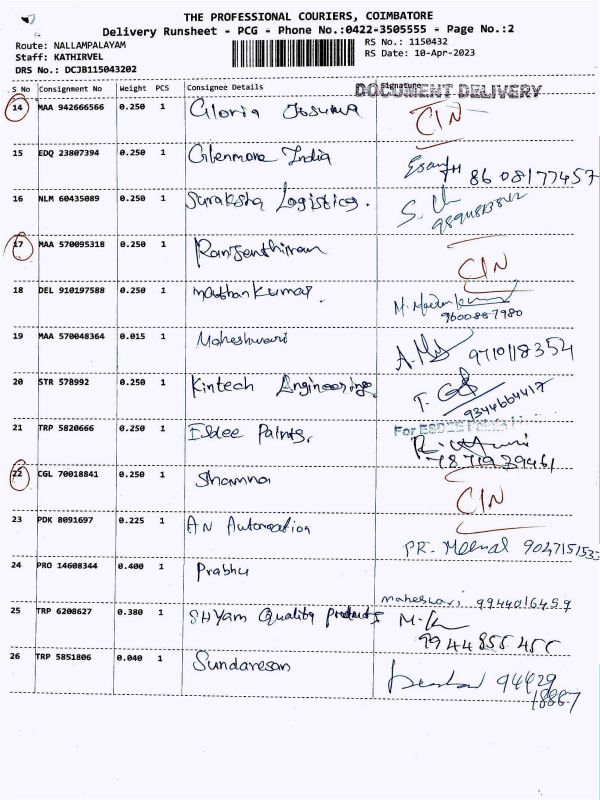 THE PROFESSIONAL COURIERS, COIMBATORE
Delivery Runsheet - PCG - Phone No.:0422-3505555 - Page No.:2
Route: NALLAMPALAYAM
RS No.: 1150432
Staff: KATHIRVEL
RS Date: 10-Apr-2023
DRS No.: DCJB115043202
S No Consignment No Weight PCS Consignee Details Signature
DOCUMENT DELIVERY
14 MAA 942666566 0.250 1 Gloria Josuma CIN
15 EDQ 23807394 0.250 1 Glenmore India 8608177457
16 NLM 60435089 0.250 1 Suraksha Logistics.
17 MAA 570095318 0.250 1 CIN
18 DEL 910197588 0.250 1 mathan Kumar.
9600887980
19 MAA 570048364 0.015 1 Maheshwari 9710118354
20 STR 578992 0.250 1 Kintech Engineering.
9344664417
21 TRP 5820666 0.250 1 Esdee Paints. For
22 CGL 70018841 0.250 1 Shamna CIN
23 PDK 8091697 0.225 1 AN Automation PR. Meenal
24 PRO 14608344 0.400 1 Prabhu
maheswari 9944016459
25 TRP 6208627 0.380 1 SHYam Quality products M.K
9944855455
26 TRP 5851806 0.040 1 Sundaresan 94429
18887